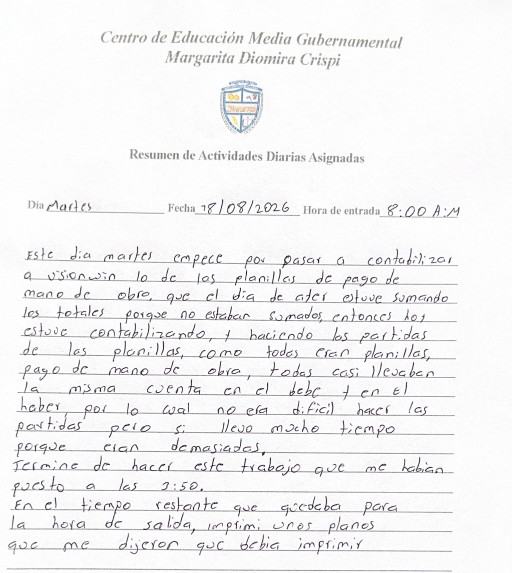 Centro de Educación Media Gubernamental
Margarita Diomira Crispi
Resumen de Actividades Diarias Asignadas
Dia Martes Fecha 18/08/2026 Hora de entrada 8:00 A:M
Este dia martes empece por pasar a contabilizar
a visionwin lo de las planillas de pago de
mano de obra, que el dia de ayer estuve sumando
los totales porque no estaban sumados, entonces hoy
estuve contabilizando, y haciendo las partidas
de las planillas, como todas eran planillas,
pago de mano de obra, todas casi llevaban
la misma cuenta en el debe y en El
haber, por lo cual no era dificil hacer las
partidas pero si llevo mucho tiempo
porque eran demasiadas,
Termine de hacer este trabajo que me habian
puesto a las 3:50.
En el tiempo restante que quedaba para
la hora de salida, imprimi unos planos
que me dijeron que debia imprimir